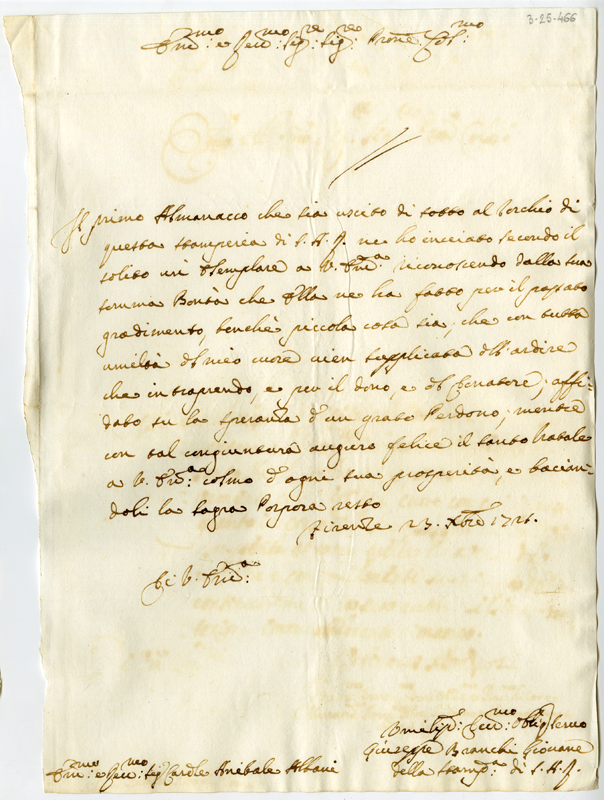 3-25-466
Em:mo e Rev:mo Sig:re Sig:re Prone Col:mo
Il primo Almanacco che sia uscito di sotto al Torchio di
questa stamperia di S. A. R. ne ho inviato secondo il
solito un' Esemplare a V. Em:a riconoscendo dalla sua
somma Bontà che Ella ne ha fatto per il passato
gradimento, benchè piccola cosa sia; che con tutta
umiltà del mio cuore vien supplicata dell'ardire
che intraprendo, e per il dono, e del Donatore; affi-
dato su la speranza d'un grato Perdono; mentre
con tal congiuntura auguro felice il santo Natale
a V. Em:a colmo d'ogni sua prosperità, e bacian-
doli la sagra Porpora resto
Firenze 23. Xbre 1721.
Di V. Em:a
Umiliss: Dev:mo Oblig: Servo
Giuseppe Branchi Giovane
della Stamp:a di S. A. R.
Em:mo e Rev:mo Sig: Cardle Anibale Albani